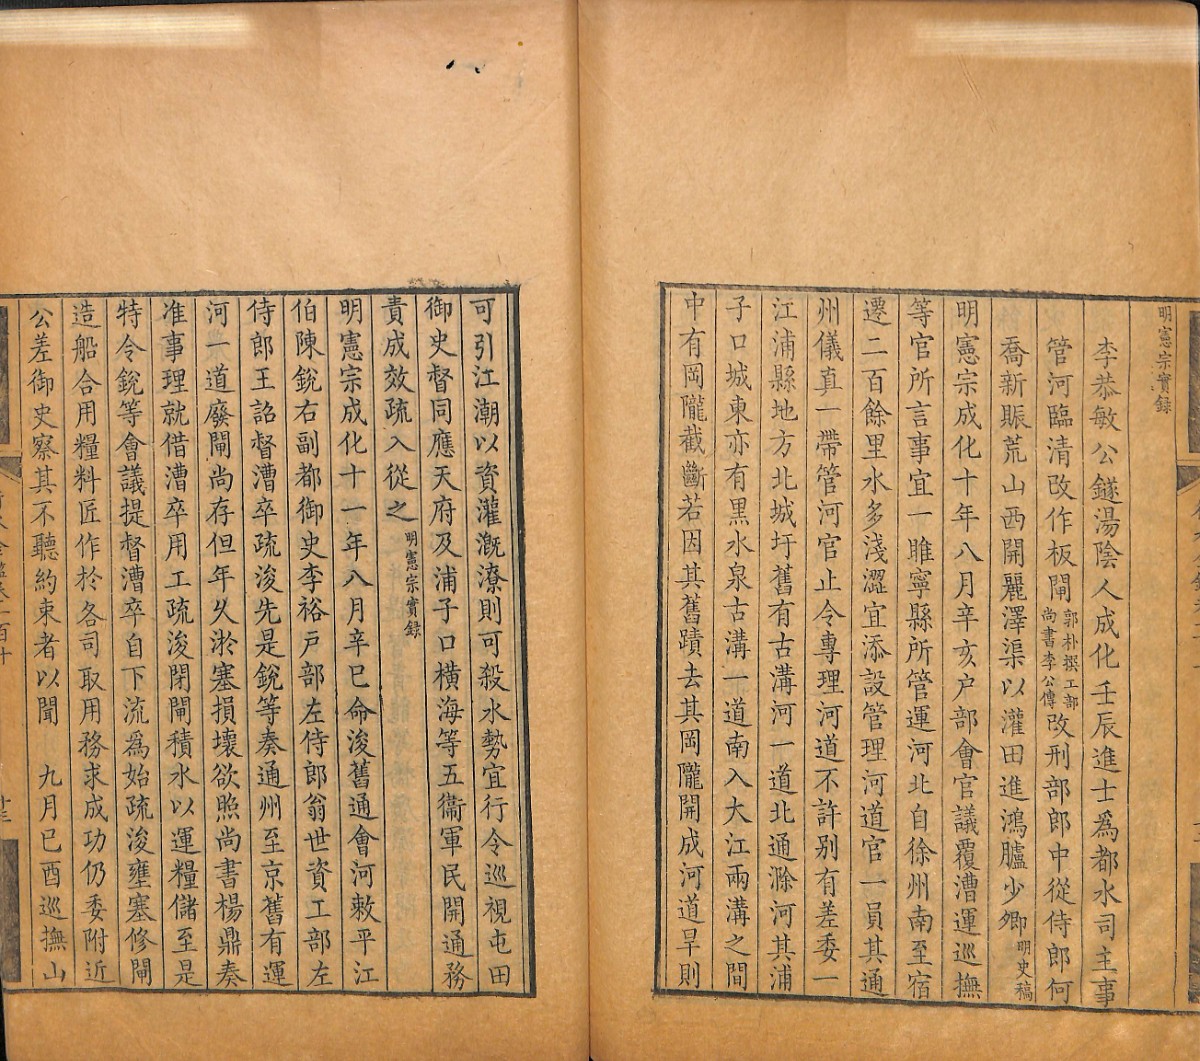 明憲宗實錄
李恭敏公鐩湯陰人成化壬辰進士爲都水司主事
管河臨清改作板閘郭朴撰工部尚書李公傳改刑部郎中從侍郎何
喬新賑荒山西開麗澤渠以灌田進鴻臚少卿明史稿
明憲宗成化十年八月辛亥户部會官議覆漕運巡撫
等官所言事宜一睢寧縣所管運河北自徐州南至宿
遷二百餘里水多淺澀宜添設管理河道官一員其通
州儀真一帶管河官止令專理河道不許別有差委一
江浦縣地方北城圩舊有古溝河一道北通滁河其浦
子口城東亦有黑水泉古溝一道南入大江兩溝之間
中有岡隴截斷若因其舊蹟去其岡隴開成河道旱則
可引江潮以資灌溉潦則可殺水勢宜行令巡視屯田
御史督同應天府及浦子口橫海等五衞軍民開通務
責成效疏入從之明憲宗實錄
明憲宗成化十一年八月辛巳命浚舊通會河敕平江
伯陳銳右副都御史李裕户部左侍郎翁世資工部左
侍郎王詔督漕卒疏浚先是銳等奏通州至京舊有運
河一道廢閘尚存但年久淤塞損壞欲照尚書楊鼎奏
准事理就借漕卒用工疏浚閉閘積水以運糧儲至是
特令銳等會議提督漕卒自下流爲始疏浚壅塞修閘
造船合用糧料匠作於各司取用務求成功仍委附近
公差御史察其不聽約束者以聞　九月巳酉巡撫山